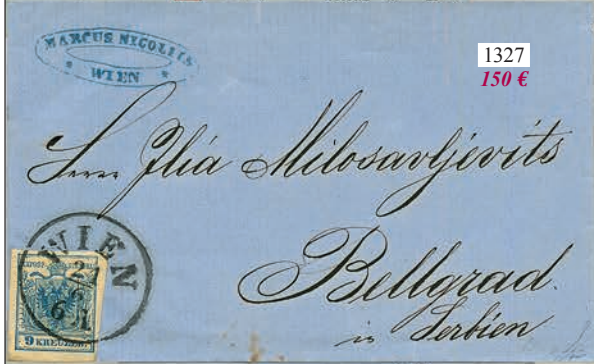 MARCUS NICOLIIS
* WIEN *
1327
150 €
Herrn Ilia Milosavljevits
Bellgrad
in Serbien
WIEN
9 KREUZER